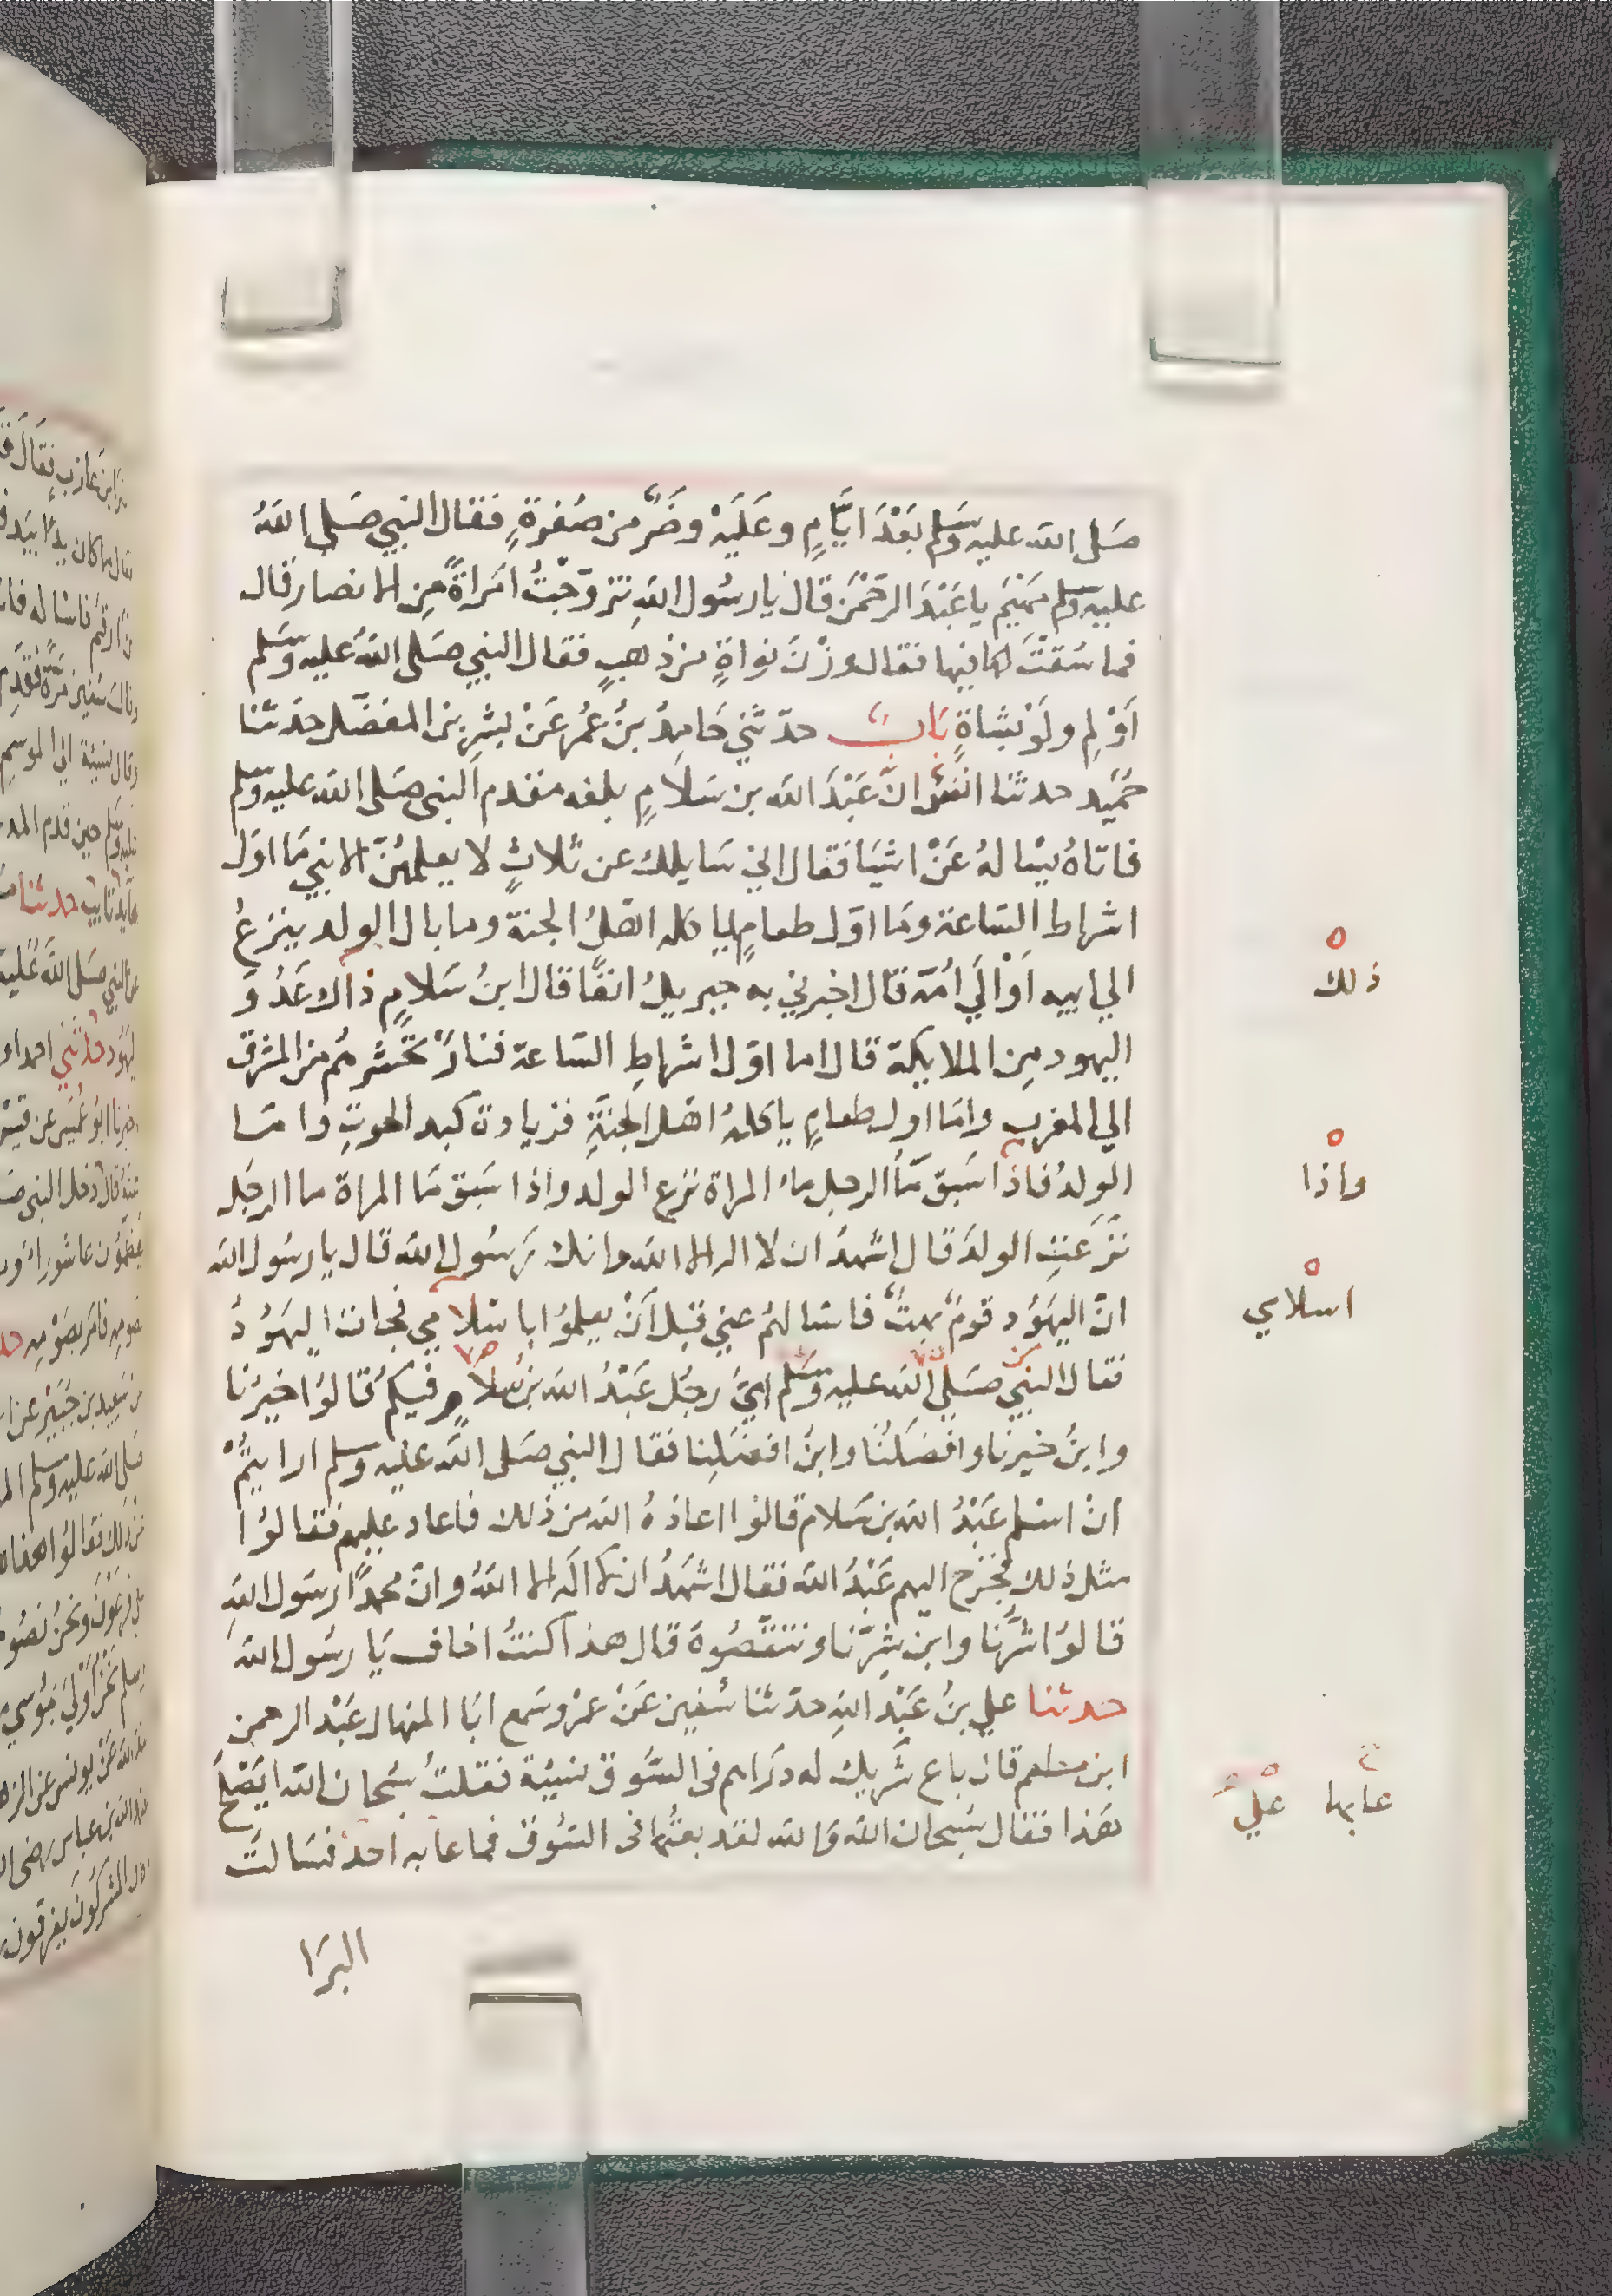 صَلى الله عليه وسَلم بَعْدَ ايَّامٍ وعَلَيْهِ وضَرٌ من صُفرةٍ فقال النبي صَلى اللهُ
عليه وسلم مَهْيَم يا عَبْدَ الرَّحمٰن قال يا رسُول اللهِ تزوّجْتُ امَراةً مِن الانصار قال
فما سُقْتَ لها فيها فقال وزْنَ نواةٍ من ذهبٍ فقال النبي صَلى اللهُ عليه وسَلم
اَوْلِم ولَوْ بشاةٍ بَاب حدّثني حَامِدُ بنُ عُمر عَنْ بشرِ بن المفضّل حدَثنا
حُمَيد حدثنا انسٌ انّ عَبْدَ الله بن سَلامٍ بلغه مقدم النبي صَلى الله عليه وسلم
فاتاهُ يسْالهُ عَنْ اشيَا فقال اني سَايلك عن ثلاثٍ لا يعلمهُنّ الا نبي مَا اوّل
اشراط السّاعة ومَا اوّل طعامٍ ياكله اهْلُ الجنة وما بال الولد ينزعُ
الي ابيه اَوْ الَي اُمّه قال اخبرني به جبريلُ انفًا قال ابنُ سَلامٍ ذاك عَدُوّ
اليهود مِن الملايكة قال اما اوّل اشراطِ السّاعة فنارٌ تحْشرهُم من المشرق
الي المغرب وامَا اول طعامٍ ياكلهُ اهْل الجنَّةِ فزيادة كبد الحوتِ وامَا
الولدُ فاذا سَبق مَاُ الرجل ماءَ المراة نزع الولد واذا سَبق مَا المراة ما الرجَل
نزَعَتِ الولدَ قال اشهدُ ان لا اله الا الله وانك رَسُول الله قال يا رسُول الله
انّ اليهَوُد قومٌ بهتٌ فاسْالهُم عني قبل اَنْ يعلمُوا باسْلامي فجات اليهَوُدُ
فقال النبي صَلي الله عليه وسَلم ايُّ رجُل عَبْدُ الله بنُ سَلامٍ فيكم قالوُا خيرُنا
وابنُ خيرنا وافضَلُنا وابنُ افضَلِنا فقال النبي صَلى الله عليه وسلم ارايتُمْ
انْ اسْلم عَبْدُ الله بن سَلام قالوُا اعاذهُ الله من ذلك فاعاد عليهم فقالوُا
مثل ذلك فخرج اليهم عَبْدُ الله فقال اشهَدُ ان لا اله الا اللهُ وانّ محمدًا رسَول اللهِ
قالوُا شرُّنا وابن شرّنا وتنقّصُوهُ قال هذا كنتُ اخاف يَا رسُول الله
حدثنا علي بنُ عَبْد اللهِ حدّثنا سُفين عَنْ عمرو سَمع ابَا المنهال عَبْد الرحمن
ابن مطعم قال باع شَريك له درَاهم في السُّوق نسيئة فقلتُ سُبحان الله ايَصْلح
هَذا فقال سُبحان الله وَالله لقد بعتُها في السُّوق فما عابه احدٌ فسَالتُ
البَرَا
ذلك
واذا
اسلامي
عابها عليّ